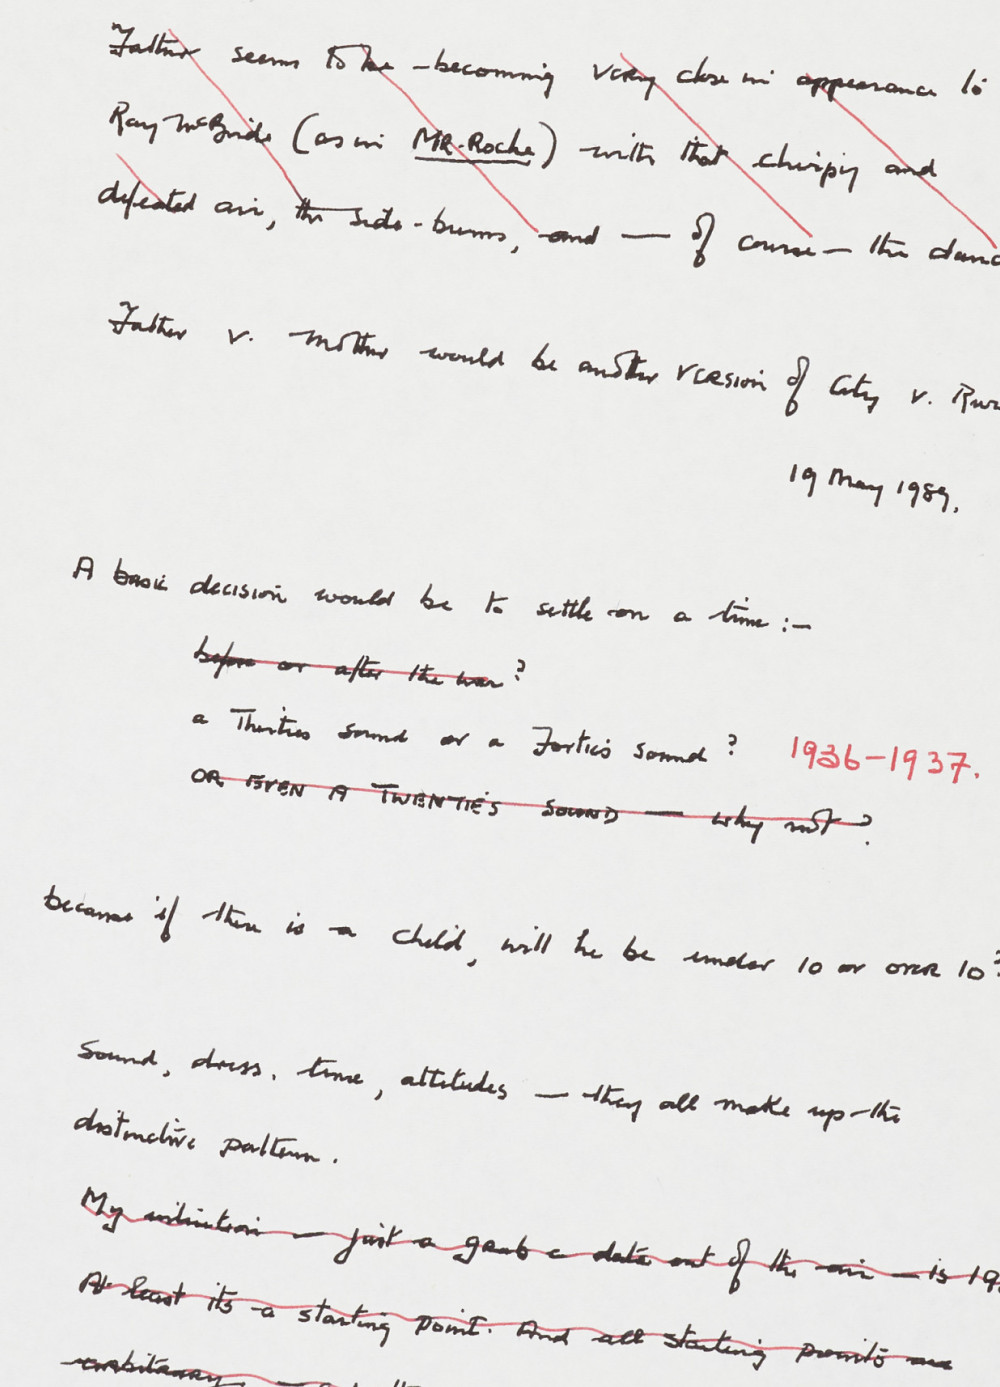 Father seems to be becoming very close in appearance to
Ray McBride (as in MR. Roche) with that chirpy and
defeated air, the side-burns, and — of course — the
Father v. Mother would be another version of City v.
19 May 1989.
A basic decision would be to settle on a time :-
before or after the war?
a Thirties sound or a Forties sound? 1936-1937.
OR EVEN A TWENTIES SOUND — why not?
because if there is a child, will he be under 10 or over 10?
Sound, dress, time, attitudes — they all make up the
distinctive pattern.
My intuition — just to grab a date out of the air — is
At least its a starting point. And all starting points are
arbitrary —